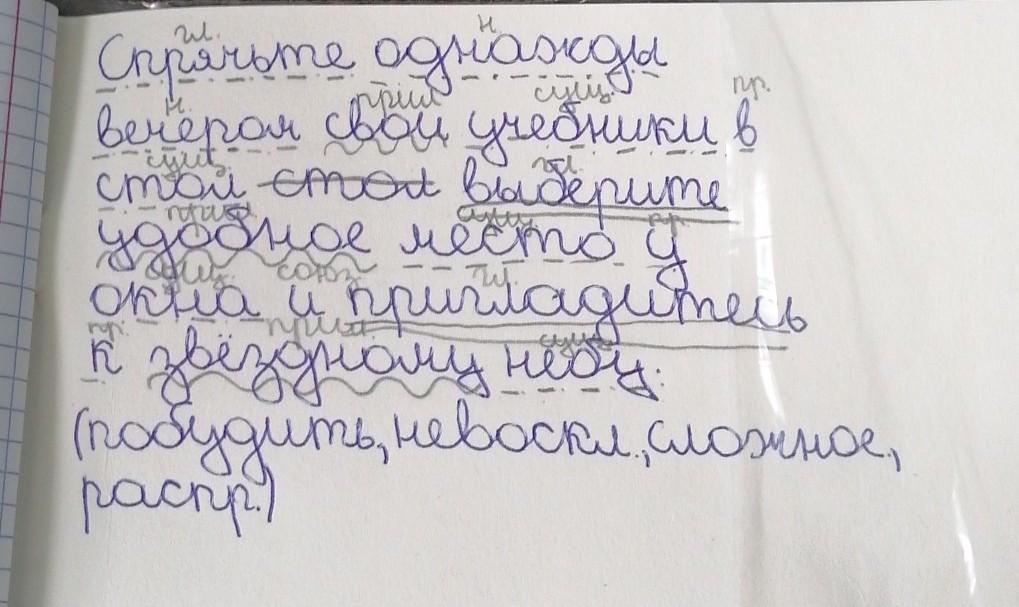 гл. н.
Спрячьте однажды
н. прил сущ. пр.
вечером свои учебники в
сущ гл.
стол стол выберите
прил сущ пр.
удобное место у
сущ союз гл.
окна и пригладитесь
пр. прил сущ
к звёздному небу.
(побудить, невоскл., сложное,
распр.)